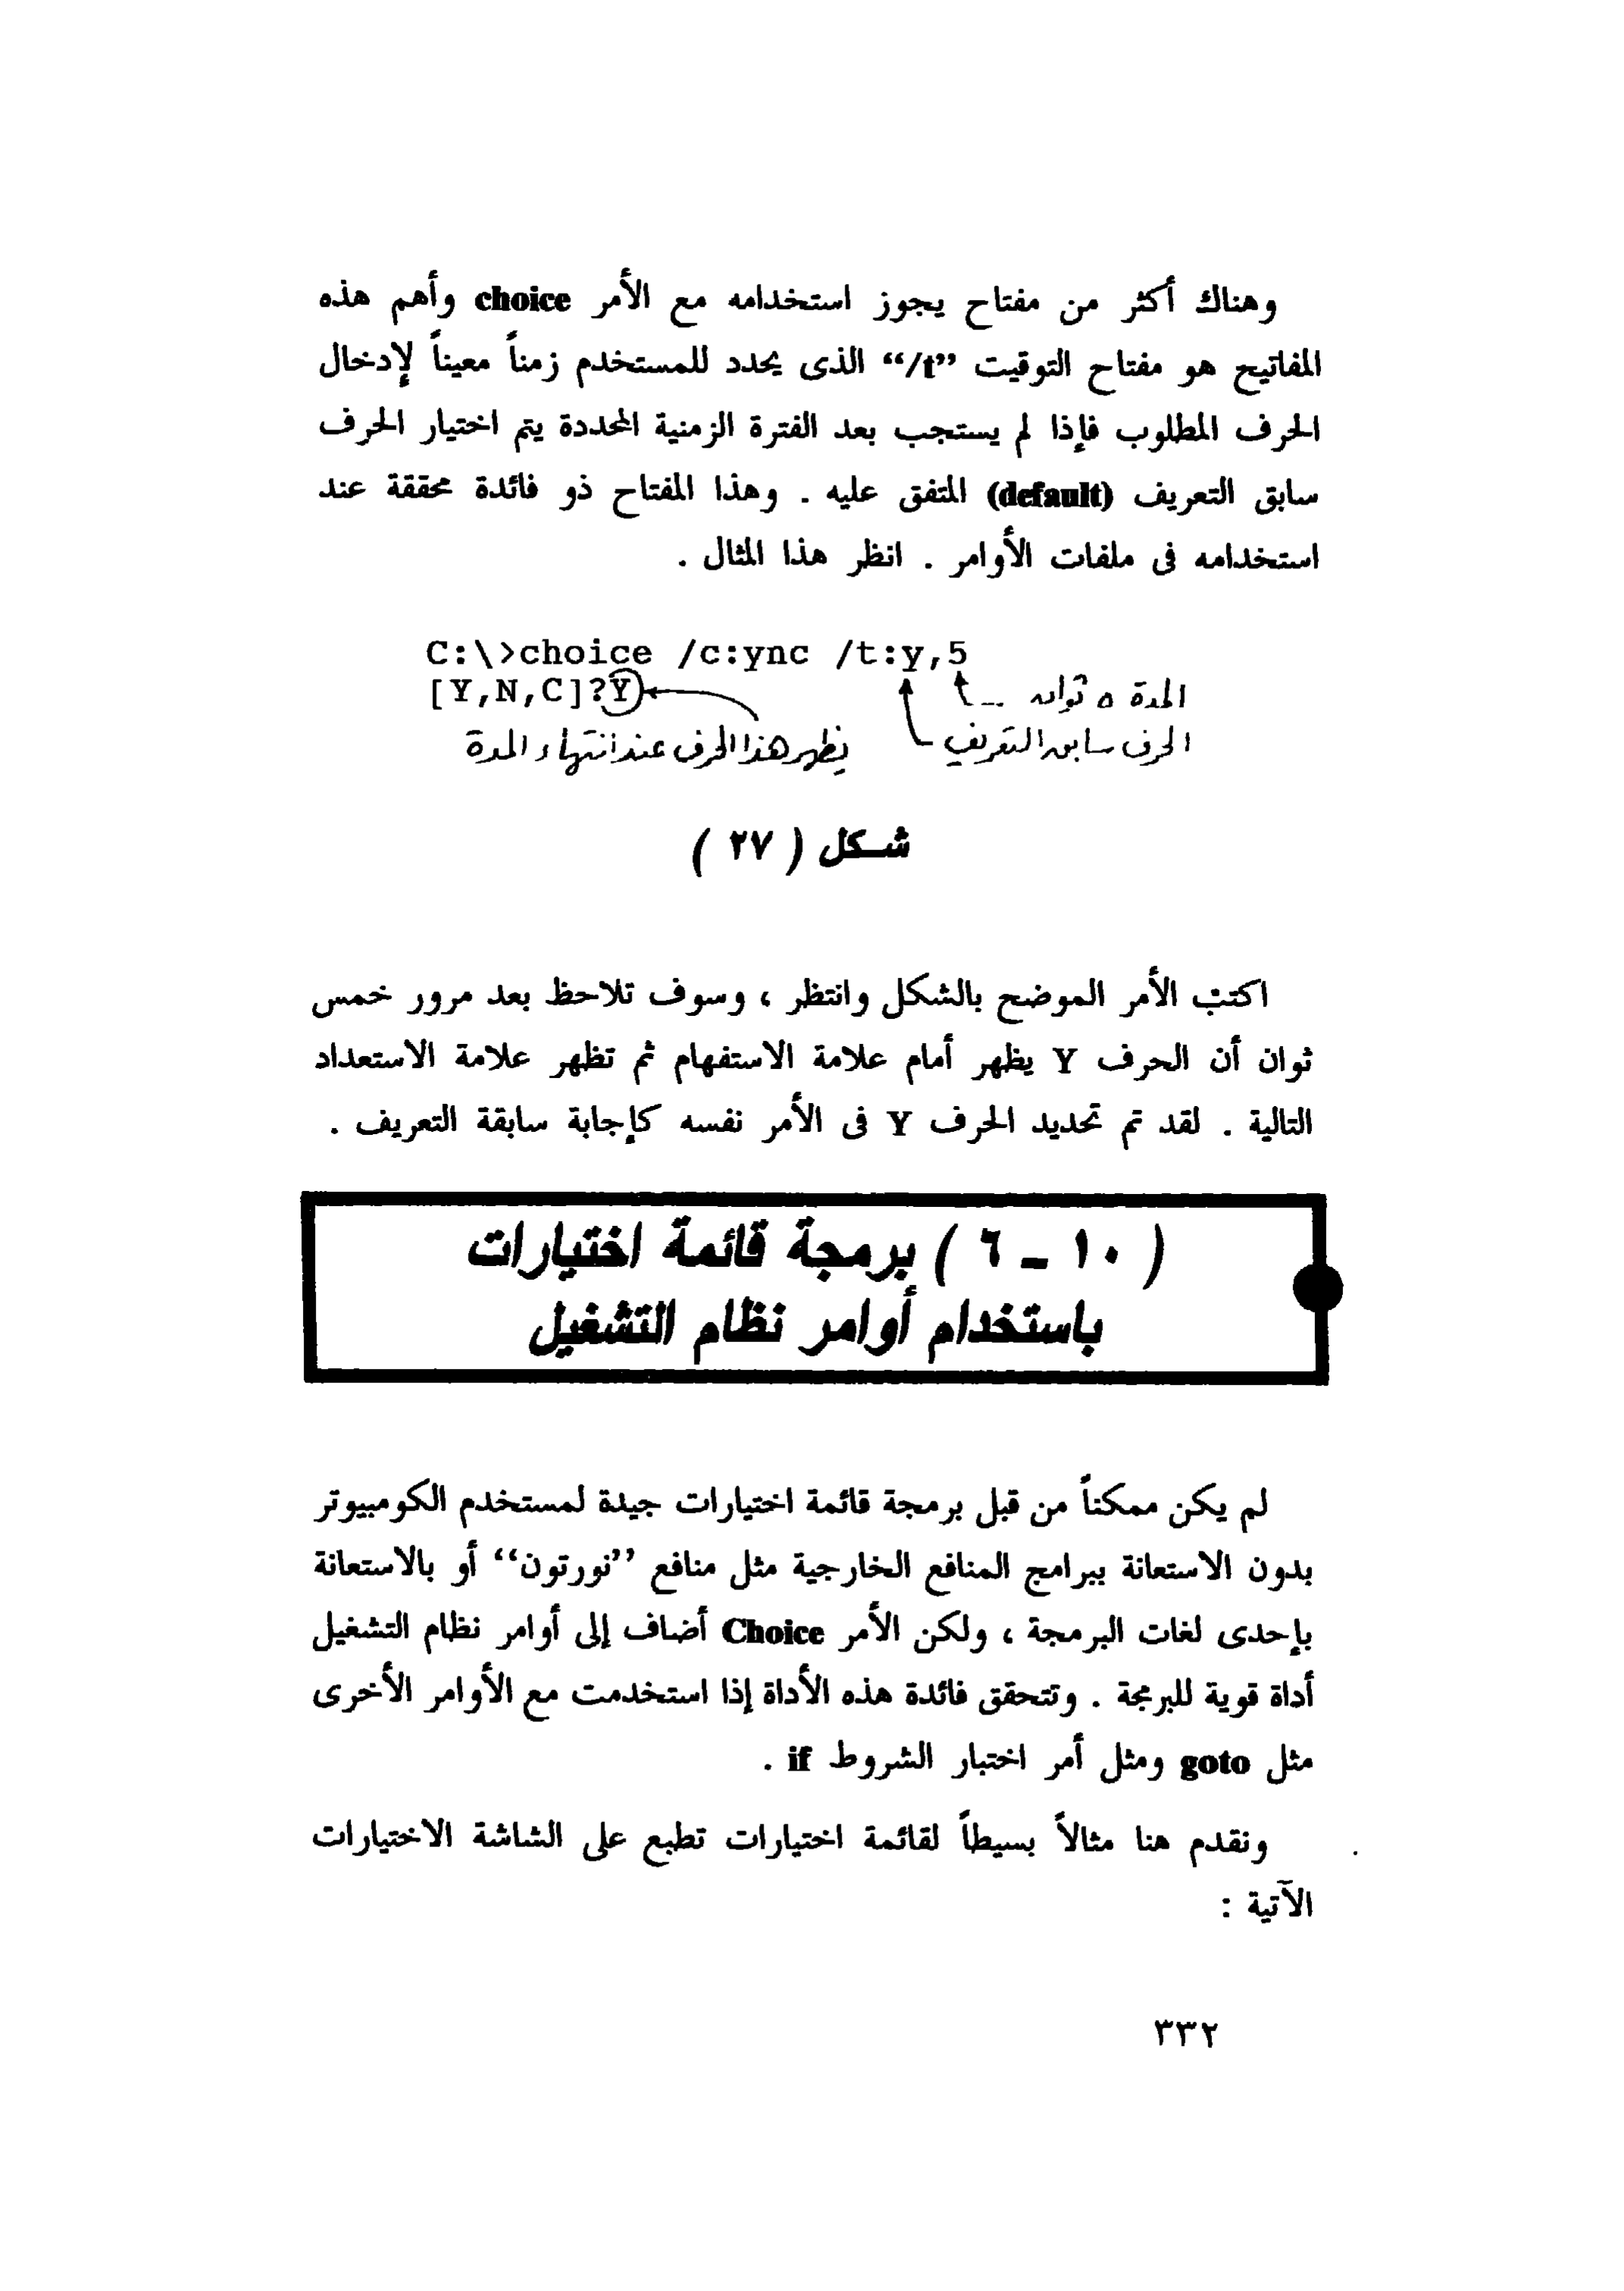 وهناك أكثر من مفتاح يجوز استخدامه مع الأمر choice وأهم هذه
المفاتيح هو مفتاح التوقيت ”t/“ الذى يحدد للمستخدم زمناً معيناً لإدخال
الحرف المطلوب فإذا لم يستجب بعد الفترة الزمنية المحددة يتم اختيار الحرف
سابق التعريف (default) المتفق عليه . وهذا المفتاح ذو فائدة محققة عند
استخدامه فى ملفات الأوامر . انظر هذا المثال .
C:\>choice /c:ync /t:y,5
[Y,N,C]?Y
المدة ٥ ثوان
الحرف سابق التعريف
يظهر هذا الحرف عند انتهاء المدة
شكل ( ٢٧ )
اكتب الأمر الموضح بالشكل وانتظر ، وسوف تلاحظ بعد مرور خمس
ثوان أن الحرف Y يظهر أمام علامة الاستفهام ثم تظهر علامة الاستعداد
التالية . لقد تم تحديد الحرف Y فى الأمر نفسه كإجابة سابقة التعريف .
( ١٠ - ٦ ) برمجة قائمة اختيارات
باستخدام أوامر نظام التشغيل
لم يكن ممكناً من قبل برمجة قائمة اختيارات جيدة لمستخدم الكومبيوتر
بدون الاستعانة ببرامج المنافع الخارجية مثل منافع ”نورتون“ أو بالاستعانة
بإحدى لغات البرمجة ، ولكن الأمر Choice أضاف إلى أوامر نظام التشغيل
أداة قوية للبرمجة . وتتحقق فائدة هذه الأداة إذا استخدمت مع الأوامر الأخرى
مثل goto ومثل أمر اختبار الشروط if .
ونقدم هنا مثالاً بسيطاً لقائمة اختيارات تطبع على الشاشة الاختيارات
الآتية :
٣٣٢